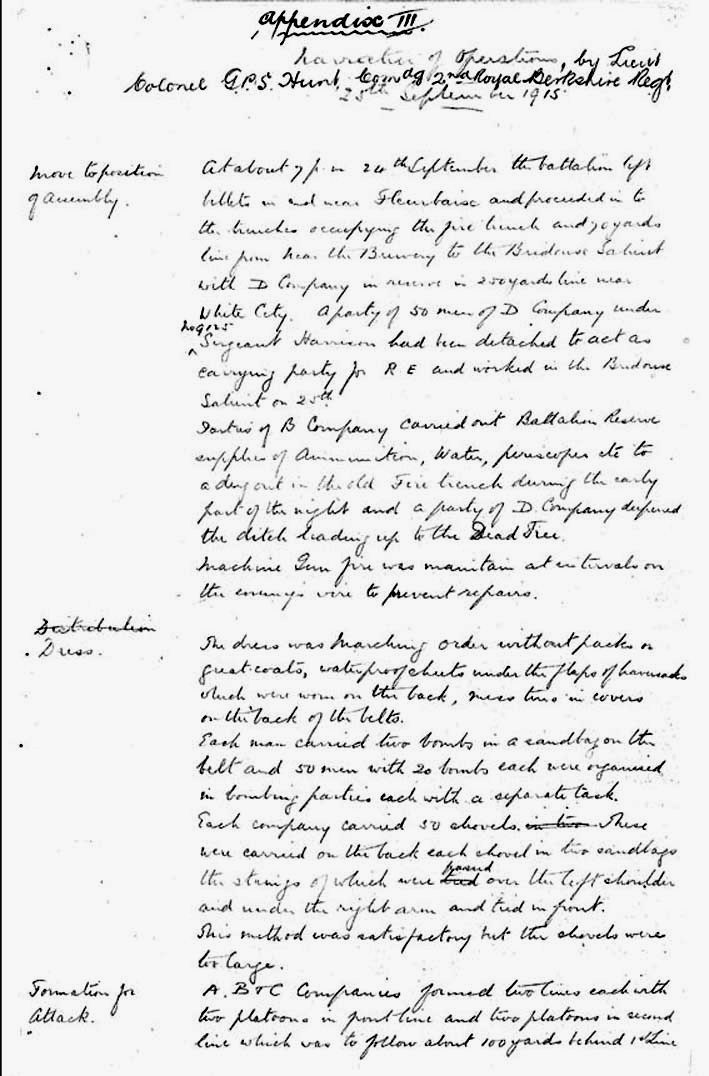 Appendix III.
Narrative of Operations, by Lieut
Colonel G.P.S. Hunt, Comdg 2nd Royal Berkshire Regt,
25th September 1915
Move to position
of Assembly.
At about 7 p.m 24th September the battalion left
billets in and near Fleurbaix and proceeded in to
the trenches occupying the fire trench and 70 yards
line from near the Brewery to the Bridoux Salient
with D Company in reserve in 250 yards line near
White City. A party of 50 men of D Company under
No 9025
Sergeant Harrison had been detached to act as
carrying party for R E and worked in the Bridoux
Salient on 25th
Parties of B Company carried out Battalion Reserve
supplies of Ammunition, Water, periscopes etc to
a dug out in the old Fire trench during the early
part of the night and a party of D. Company deepened
the ditch leading up to the Dead Tree.
Machine Gun fire was maintain at intervals on
the enemy's wire to prevent repairs.
Distribution
Dress.
The dress was Marching Order without packs or
great coats, waterproof sheets under the flaps of haversacks
which were worn on the back, mess tins in covers
on the back of the belts.
Each man carried two bombs in a sandbag on the
belt and 50 men with 20 bombs each were organised
in bombing parties each with a separate task.
Each company carried 50 shovels. in two These
were carried on the back each shovel in two sandbags
the strings of which were tied passed over the left shoulder
and under the right arm and tied in front.
This method was satisfactory but the shovels were
too large.
Formation for
Attack.
A. B & C Companies formed two lines each with
two platoons in front line and two platoons in second
line which was to follow about 100 yards behind 1st Line